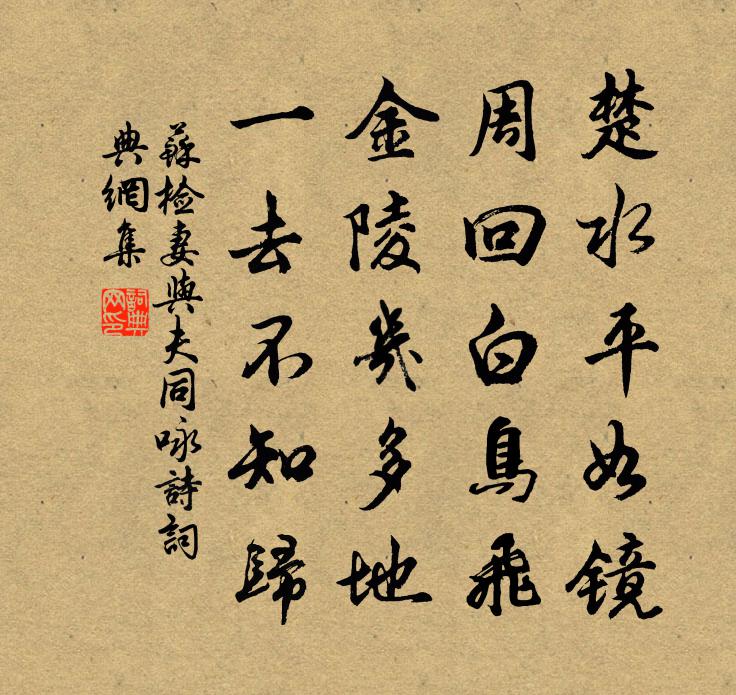 楚水平如鏡
周回白鳥飛
金陵幾多地
一去不知歸
蘇检妻與夫同咏詩詞
典網集
詞典網印